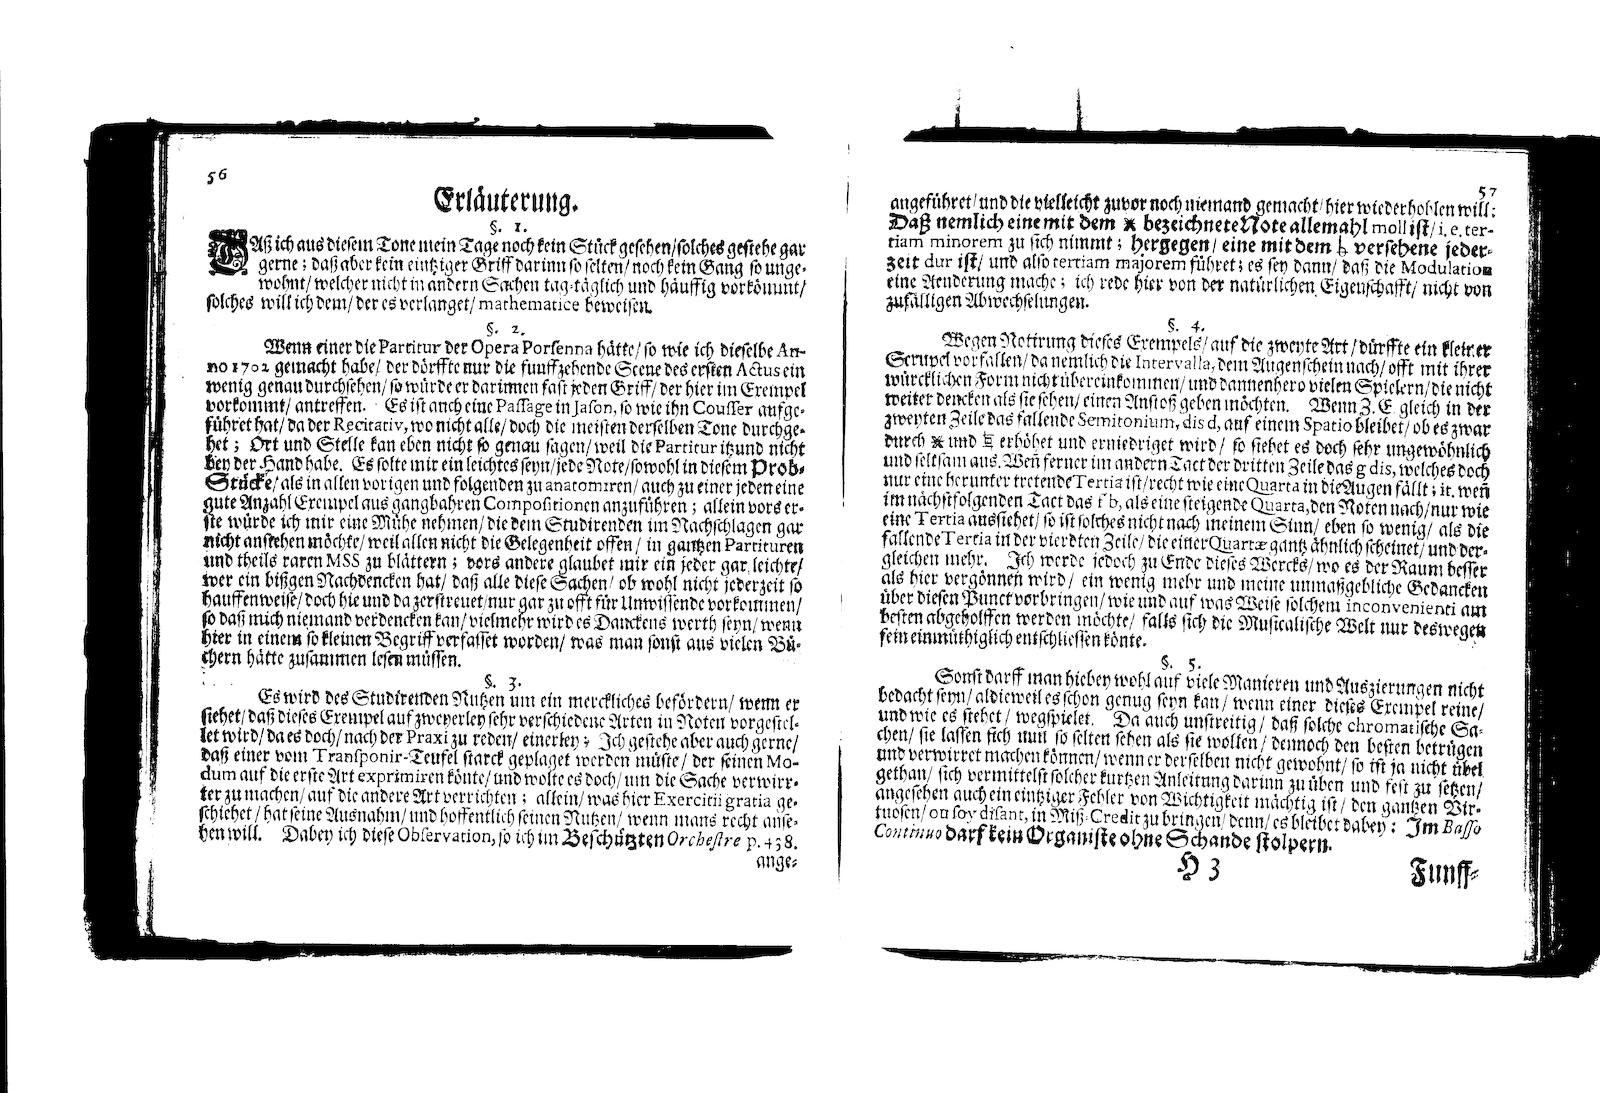 56
Erläuterung.
§. 1.
DAß ich aus diesem Tone mein Tage noch kein Stück gesehen/ solches gestehe gar
gerne; daß aber kein eintziger Griff darinn so selten/ noch kein Gang so unge-
wohnt/ welcher nicht in andern Sachen tag-täglich und häuffig vorkömmt/
solches will ich dem/ der es verlanget/ mathematice beweisen.
§. 2.
Wenn einer die Partitur der Opera Porsenna hätte/ so wie ich dieselbe An-
no 1702 gemacht habe/ der dörffte nur die funffzehende Scene des ersten Actus ein
wenig genau durchsehen/ so würde er darinnen fast jeden Griff/ der hier im Exempel
vorkommt/ antreffen. Es ist auch eine Passage in Jason, so wie ihn Cousser aufge-
führet hat/ da der Recitativ, wo nicht alle/ doch die meisten derselben Tone durchge-
het; Ort und Stelle kan eben nicht so genau sagen/ weil die Partitur itzund nicht
bey der Hand habe. Es solte mir ein leichtes seyn/ jede Note/ sowohl in diesem Prob-
Stücke/ als in allen vorigen und folgenden zu anatomiren/ auch zu einer jeden eine
gute Anzahl Exempel aus gangbahren Compositionen anzuführen; allein vors er-
ste würde ich mir eine Mühe nehmen/ die dem Studirenden im Nachschlagen gar
nicht anstehen möchte/ weil allen nicht die Gelegenheit offen/ in gantzen Partituren
und theils raren MSS zu blättern; vors andere glaubet mir ein jeder gar leichte/
wer ein bißgen Nachdencken hat/ daß alle diese Sachen/ ob wohl nicht jederzeit so
hauffenweise/ doch hie und da zerstreuet/ nur gar zu offt für Unwissende vorkommen/
so daß mich niemand verdencken kan/ vielmehr wird es Danckens werth seyn/ wenn
hier in einem so kleinen Begriff verfasset worden/ was man sonst aus vielen Bü-
chern hätte zusammen lesen müssen.
§. 3.
Es wird des Studirenden Nutzen um ein merckliches befördern/ wenn er
siehet/ daß dieses Exempel auf zweyerley sehr verschiedene Arten in Noten vorgestel-
let wird/ da es doch/ nach der Praxi zu reden/ einerley; Ich gestehe aber auch gerne/
daß einer vom Transponir-Teufel starck geplaget werden müste/ der seinen Mo-
dum auf die erste Art exprimiren könte/ und wolte es doch/ um die Sache verwirr-
ter zu machen/ auf die andere Art verrichten; allein/ was hier Exercitii gratia ge-
schiehet/ hat seine Ausnahm/ und hoffentlich seinen Nutzen/ wenn mans recht anse-
hen will. Dabey ich diese Observation, so ich im Beschützten Orchestre p. 438.
ange-
57
angeführet/ und die vielleicht zuvor noch niemand gemacht/ hier wiederhohlen will:
Daß nemlich eine mit dem ※ bezeichnete Note allemahl moll ist/ i. e. ter-
tiam minorem zu sich nimmt; hergegen/ eine mit dem ♭ versehene jeder-
zeit dur ist/ und also tertiam majorem führet; es sey dann/ daß die Modulation
eine Aenderung mache; ich rede hier von der natürlichen Eigenschafft/ nicht von
zufälligen Abwechselungen.
§. 4.
Wegen Notirung dieses Exempels/ auf die zweyte Art/ dürffte ein kleiner
Scrupel vorfallen/ da nemlich die Intervalla, dem Augenschein nach/ offt mit ihrer
würcklichen Form nicht übereinkommen/ und dannenhero vielen Spielern/ die nicht
weiter dencken als sie sehen/ einen Anstoß geben möchten. Wenn Z. E. gleich in der
zweyten Zeile das fallende Semitonium, dis d, auf einem Spatio bleibet/ ob es zwar
durch ※ und ♮ erhöhet und erniedriget wird/ so siehet es doch sehr ungewöhnlich
und seltsam aus. Weñ ferner im andern Tact der dritten Zeile das g dis, welches doch
nur eine herunter tretende Tertia ist/ recht wie eine Quarta in die Augen fällt; it. weñ
im nächstfolgenden Tact das f b, als eine steigende Quarta, den Noten nach/ nur wie
eine Tertia aussiehet/ so ist solches nicht nach meinem Sinn/ eben so wenig/ als die
fallende Tertia in der vierdten Zeile/ die einer Quartæ gantz ähnlich scheinet/ und der-
gleichen mehr. Ich werde jedoch zu Ende dieses Wercks/ wo es der Raum besser
als hier vergönnen wird/ ein wenig mehr und meine unmaßgebliche Gedancken
über diesen Punct vorbringen/ wie und auf was Weise solchem inconvenienti am
besten abgeholffen werden möchte/ falls sich die Musicalische Welt nur deswegen
fein einmüthiglich entschliessen könte.
§. 5.
Sonst darff man hiebey wohl auf viele Manieren und Auszierungen nicht
bedacht seyn/ aldieweil es schon genug seyn kan/ wenn einer dieses Exempel reine/
und wie es stehet/ wegspielet. Da auch unstreitig/ daß solche chromatische Sa-
chen/ sie lassen sich nun so selten sehen als sie wollen/ dennoch den besten betrügen
und verwirret machen können/ wenn er derselben nicht gewohnt/ so ist ja nicht übel
gethan/ sich vermittelst solcher kurtzen Anleitung darinn zu üben und fest zu setzen/
angesehen auch ein eintziger Fehler von Wichtigkeit mächtig ist/ den gantzen Vir-
tuosen/ ou soy disant, in Miß-Credit zu bringen/ denn/ es bleibet dabey: Im Basso
Continuo darf kein Organiste ohne Schande stolpern.
H 3
Funff-